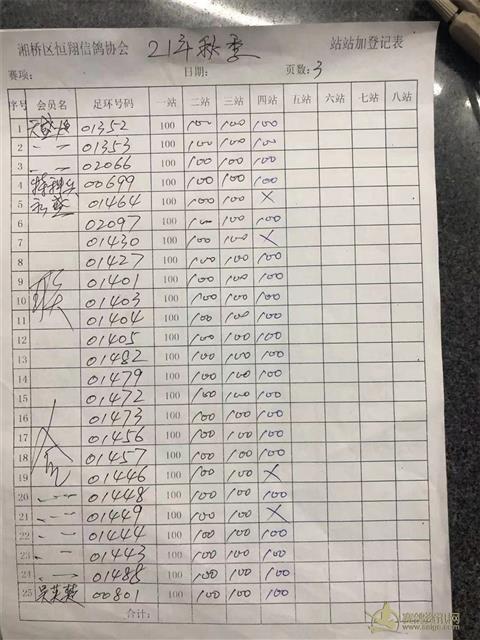 湘桥区恒翔信鸽协会 21年秋季 站站加登记表
赛项: 日期: 页数: 3
序号 会员名 足环号码 一站 二站 三站 四站 五站 六站 七站 八站
1 01352 100 100 100 100
2 〃 01353 100 100 100 100
3 〃 02066 100 100 100 100
4 特种兵 00699 100 100 100 100
5 01464 100 100 100 ×
6 02097 100 100 100 100
7 01430 100 100 100 ×
8 01427 100 100 100 100
9 01401 100 100 100 100
10 01403 100 100 100 100
11 01404 100 100 100 100
12 01405 100 100 100 100
13 01482 100 100 100 100
14 01479 100 100 100 100
15 01472 100 100 100 100
16 01473 100 100 100 100
17 01456 100 100 100 100
18 01457 100 100 100 100
19 01446 100 100 100 ×
20 〃 01448 100 100 100 100
21 〃 01449 100 100 100 ×
22 〃 01444 100 100 100 100
23 〃 01443 100 100 100 100
24 〃 01485 100 100 100 100
25 00801 100 100 100 100
合计: